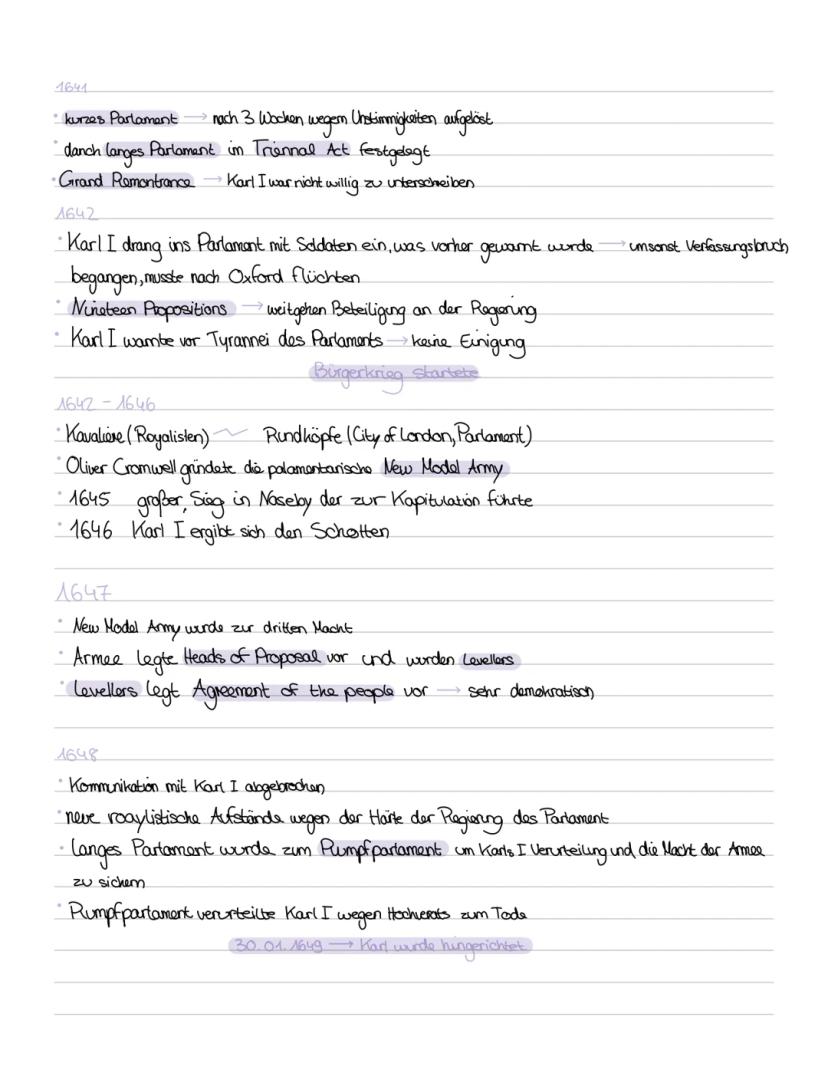 1641
• kurzes Parlament → nach 3 Wochen wegem Unstimmigkeiten aufgelöst
• danch langes Parlament im Triennal Act festgelegt
• Grand Remontrance → Karl I war nicht willig zu unterscheiben
1642
• Karl I drang ins Parlament mit Soldaten ein, was vorher gewarnt wurde → umsonst Verfassungsbruch
begangen, musste nach Oxford flüchten
• Nineteen Propositions → weitgehen Beteiligung an der Regierung
• Karl I warnte vor Tyrannei des Parlaments → keine Einigung
Bürgerkrieg startete
1642 - 1646
• Kavaliere (Royalisten) Rundköpfe (City of London, Parlament)
• Oliver Cromwell gründete die palamentarische New Model Army
• 1645 großer, Sieg in Naseby der zur Kapitulation führte
• 1646 Karl I ergibt sich den Schotten
1647
• New Model Army wurde zur dritten Macht
• Armee legte Heads of Proposal vor und wurden Levellers
• Levellers legt Agreement of the people vor → sehr demokratisch
1648
• Kommunikation mit Karl I abgebrochen
• neue roaylistische Aufstände wegen der Härte der Regierung des Parlament
• Langes Parlament wurde zum Rumpfparlament um Karls I Verurteilung und die Macht der Armee
zu sichern
• Rumpfparlament verurteilte Karl I wegen Hochverats zum Tode
30.01.1649 → Karl wurde hingerichtet